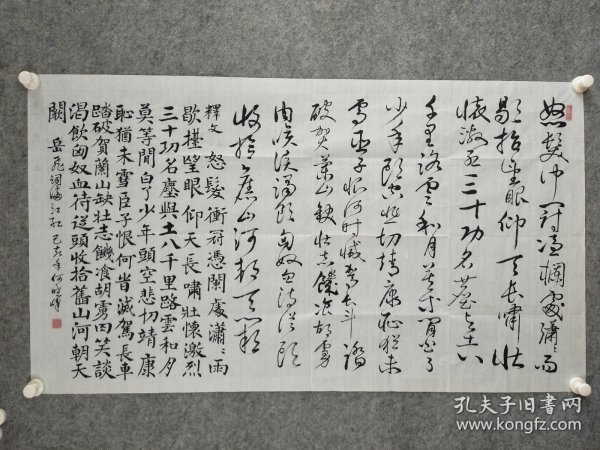 怒髮冲冠憑欄處瀟〻雨
歇抬望眼仰天長嘯壯
懷激烈三十功名塵與土八
千里路雲和月莫等閒白了
少年頭空悲切靖康恥猶未
雪臣子恨何時滅駕長車踏
破賀蘭山缺壯志饑飡胡虜
肉笑談渴飲匈奴血待從頭
收拾舊山河朝天闕
釋文 怒髮衝冠憑闌處瀟〻雨
歇擡望眼仰天長嘯壯懷激烈
三十功名塵與土八千里路雲和月
莫等閒白了少年頭空悲切靖康
恥猶未雪臣子恨何時滅駕長車
踏破賀蘭山缺壯志饑飡胡虜肉笑談
渴飲匈奴血待從頭收拾舊山河朝天
闕 岳飛詞滿江紅 己亥年何曉峰
孔夫子旧书网
www.kongfz.com